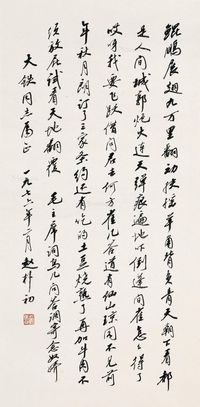 鲲鹏展翅九万里翻动扶摇羊角背负青天朝下看都
是人间城郭炮火连天弹痕遍地吓倒蓬间雀怎么得了
哎呀我要飞跃借问君去何方雀儿答道有仙山琼阁不见前
年秋月朗订了三家条约还有吃的土豆烧熟了再加牛肉不
须放屁试看天地翻覆 毛主席词鸟儿问答调寄念奴娇
大铁同志属正 一九七六年 月 赵朴初